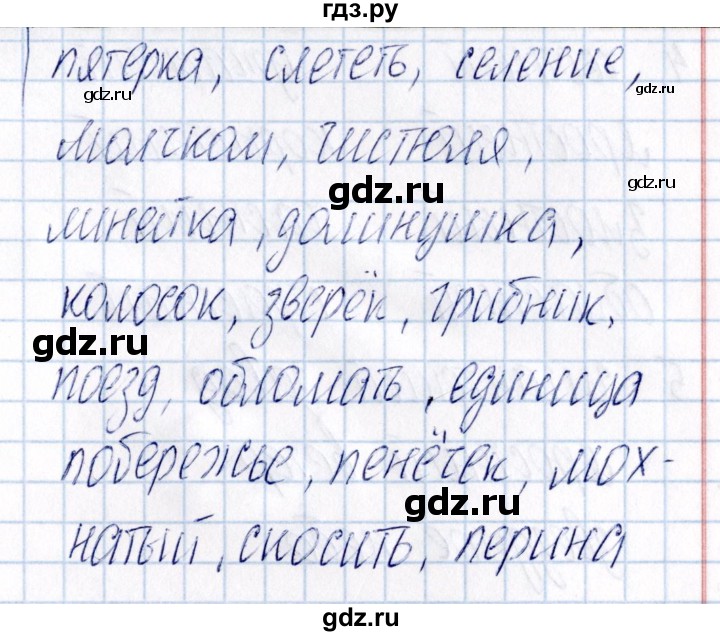 гдз.ру
пятерка, слететь, селение,
gdz.ru
gdz.ru
молчком, чистюля,
gdz.ru
gdz.ru
линейка, долинушка,
колосок, зверёк, грибник,
gdz.ru
поезд, обломать, единица
побережье, пенёчек, мох-
gdz.ru
натый, скосить, перина
gdz.ru